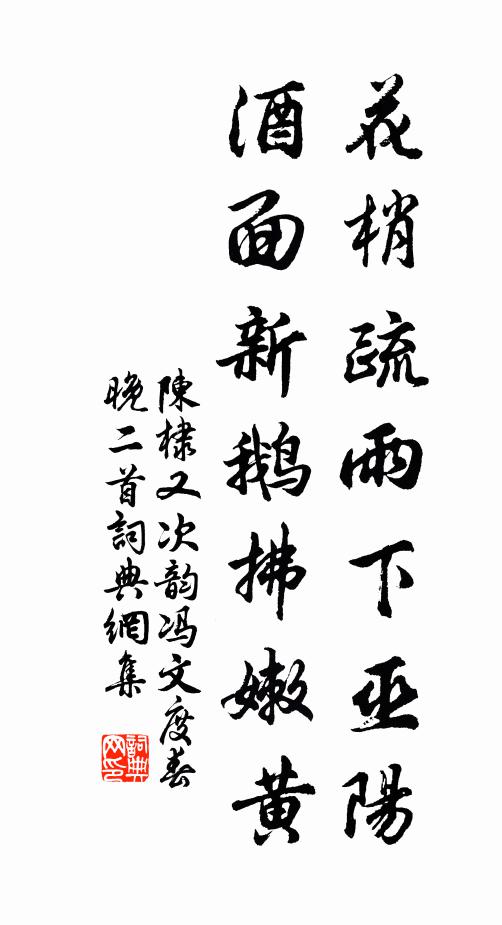 花梢疏雨下巫陽
酒面新鵝拂嫩黃
陳棣又次韵冯文度春
晚二首詞典網集
詞典
网印